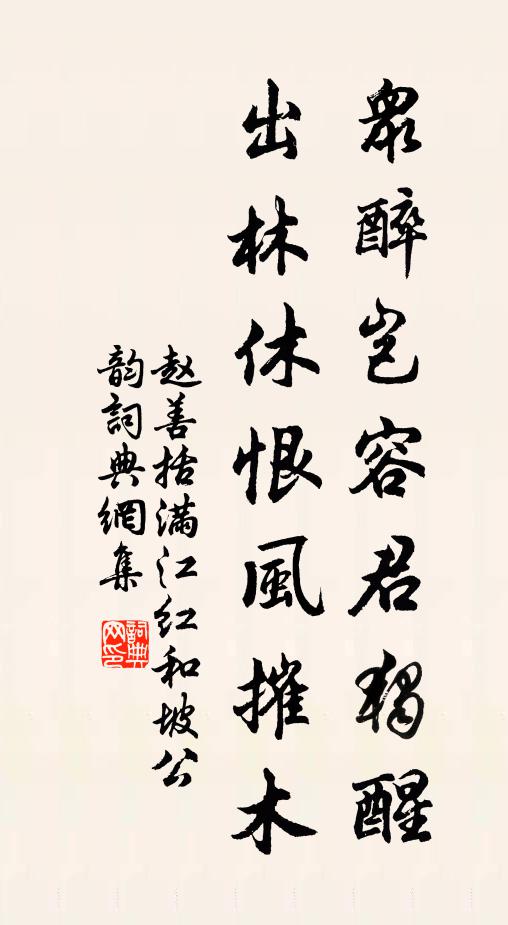 眾醉豈容君獨醒
出林休恨風摧木
赵善括满江红和坡公
韵詞典網集
詞典网印